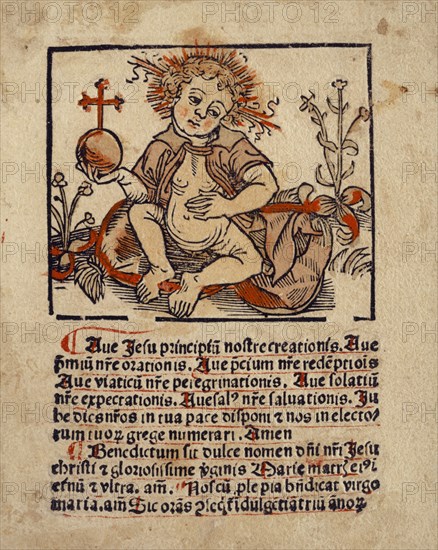 Aue Jesu principiũ nostre creationis. Aue
p̃miũ nr̃e orationis. Aue p̃cium nr̃e redẽptiõis
Aue viaticũ nr̃e peregrinationis. Aue solatiũ
nr̃e expectationis. Aue salꝰ nr̃e saluationis. Ju
be dies nr̃os in tua pace disponi ⁊ nos in electo⸗
rum tuoꝝ grege numerari. Amen
Benedictum sit dulce nomen dñi nr̃i Jesu
christi ⁊ gloriosissime v̓ginis Marie
etnũ ⁊ vltra. am̃. Nos cũ ple pia bñdicat virgo
maria. am̃ Sic orãs annoꝝ
PHOTO12